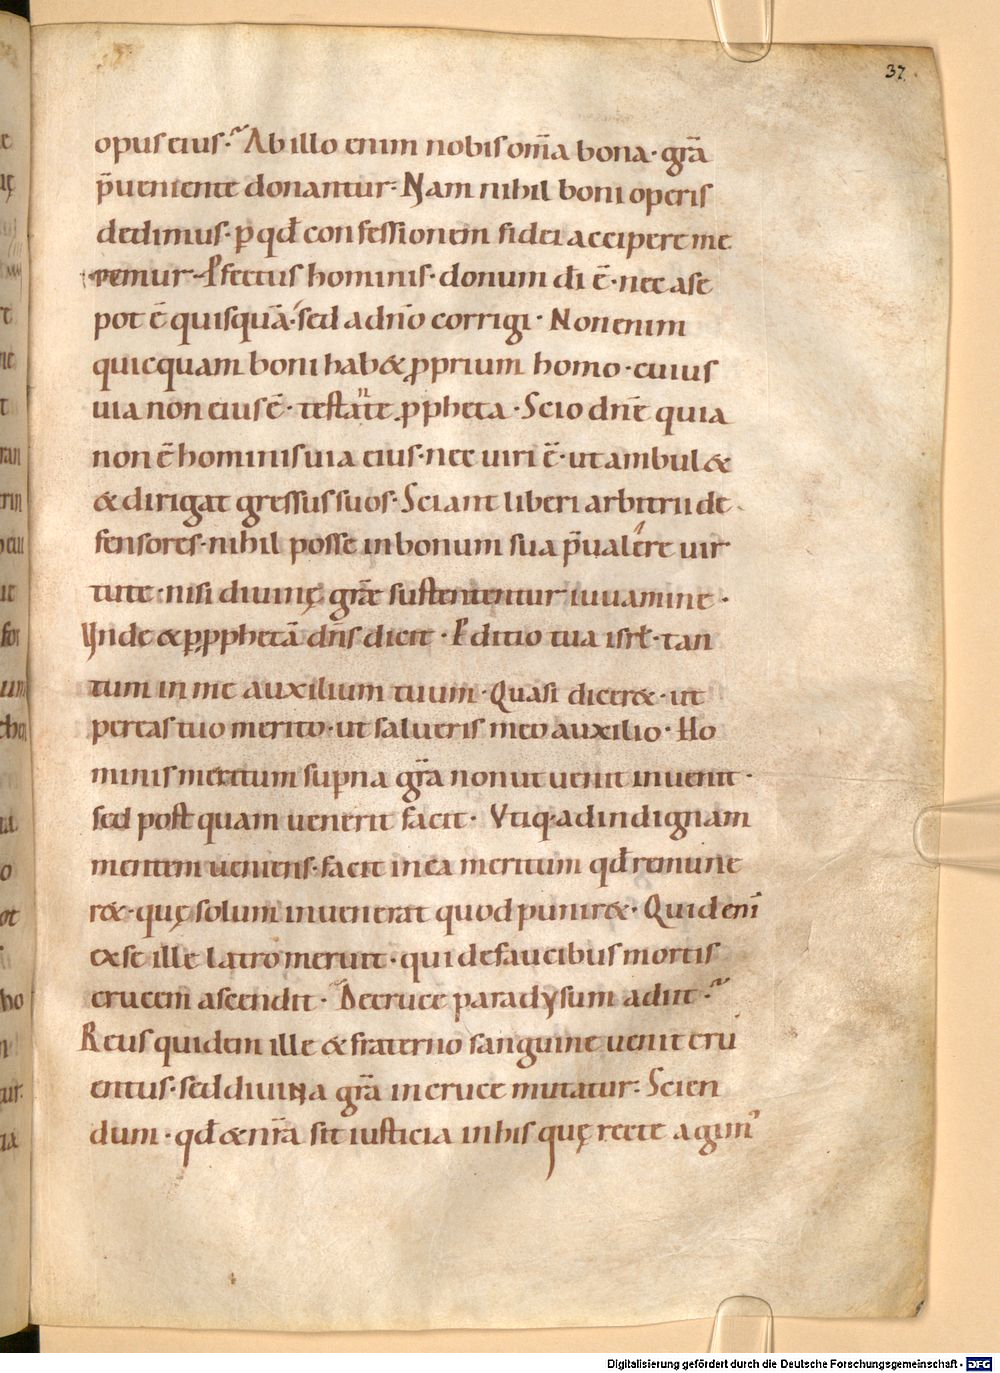 37.
opus eius · Ab illo enim nobis om̄a bona · gr̄a
p̄ueniente donantur · Nam nihil boni operis
dedimus · p̄ qđ confessionem fidei accipere me
remur · Ꝓfectus hominis · donum đi ē · nec a se
pot ē quisquā · sed a dn̄o corrigi · Non enim
quicquam boni hab& ꝓprium homo · cuius
uia non eius ē · testante ꝓpheta · Scio dn̄e quia
non ē hominis uia eius · nec uiri ē · ut ambul&
& dirigat gressus suos · Sciant liberi arbitrii de
fensores · nihil posse in bonum sua p̄ualere uir
tute · nisi diuinę gr̄ae sustententur iuuamine ·
Unde & ꝑ ꝓphetā dn̄s dicit · Ꝑditio tua isrł · tan
tum in me auxilium tuum · Quasi dicer& · ut
pereas tuo merito · ut salueris meo auxilio · Ho
minis meritum sup̄na gr̄a non ut uenit inuenit ·
sed post quam uenerit facit · Vtiq · ad indignam
mentem ueniens · facit in ea meritum qđ remune
r& · quę solum inuenerat quod punir& · Quid eni̅
ex se ille latro meruit · qui de faucibus mortis
crucem ascendit · De cruce paradysum adiit ·
Reus quidem ille & fraterno sanguine uenit cru
entus · sed diuina gr̄a in cruce mutatur · Scien
dum · qđ & nr̄a sit iusticia in his quę recte agim’
Digitalisierung gefördert durch die Deutsche Forschungsgemeinschaft - DFG